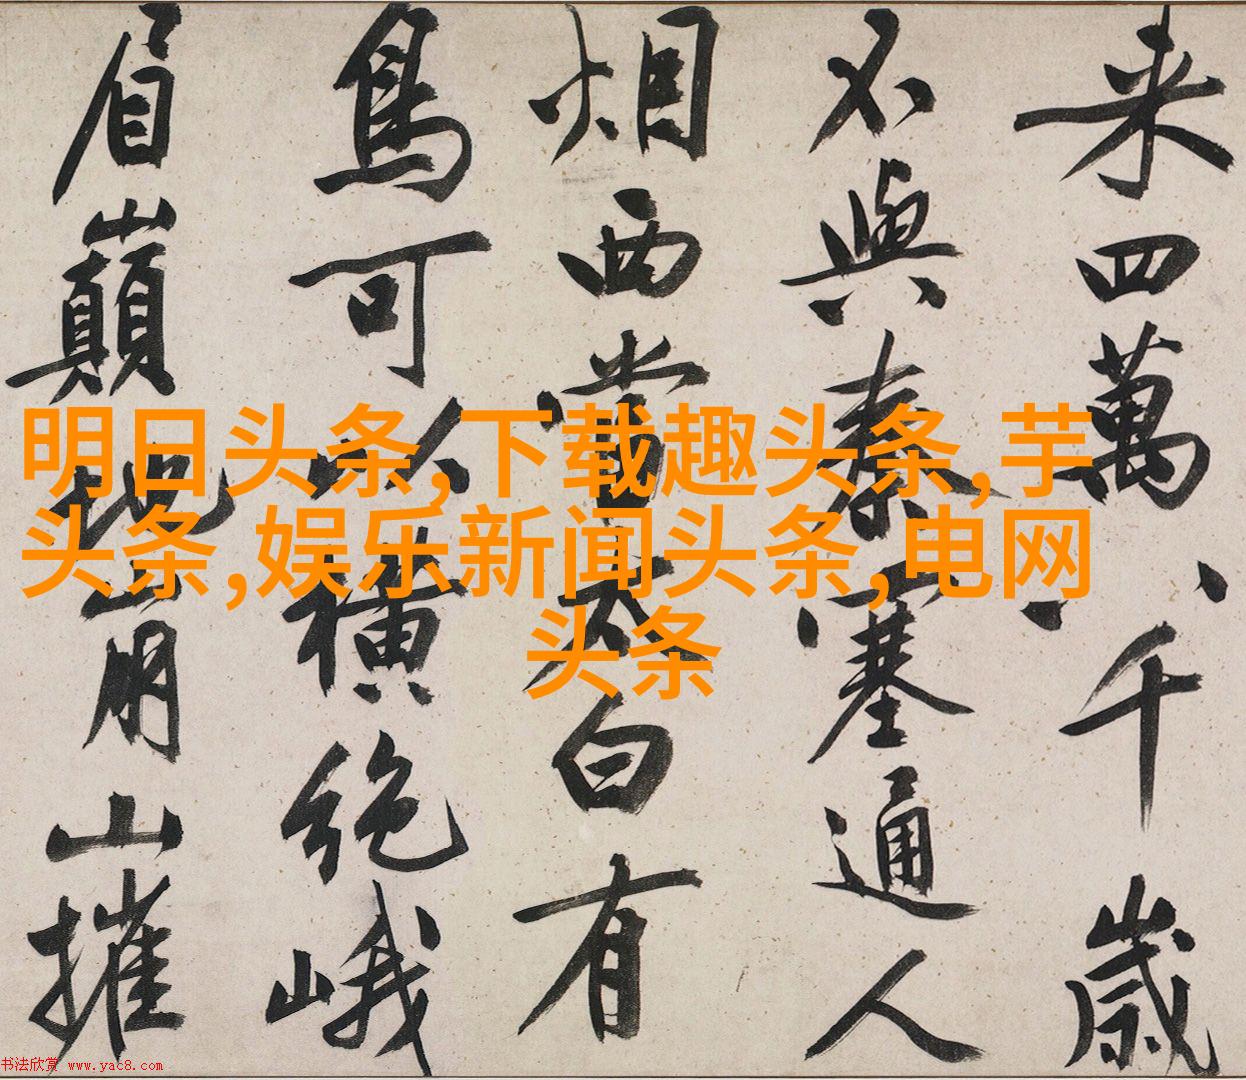 来四萬八千歲
不與秦塞通人
烟西當太白有
鳥可以橫絕峨
眉巔地崩山摧
明日头条,下载趣头条,芋
头条,娱乐新闻头条,电网
头条
书法欣赏 www.yac8.com